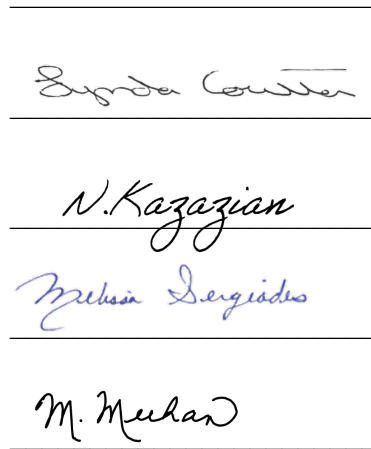 Lynda Coutts
N.Kazazian
Melissa Sergiades
M. Meehan